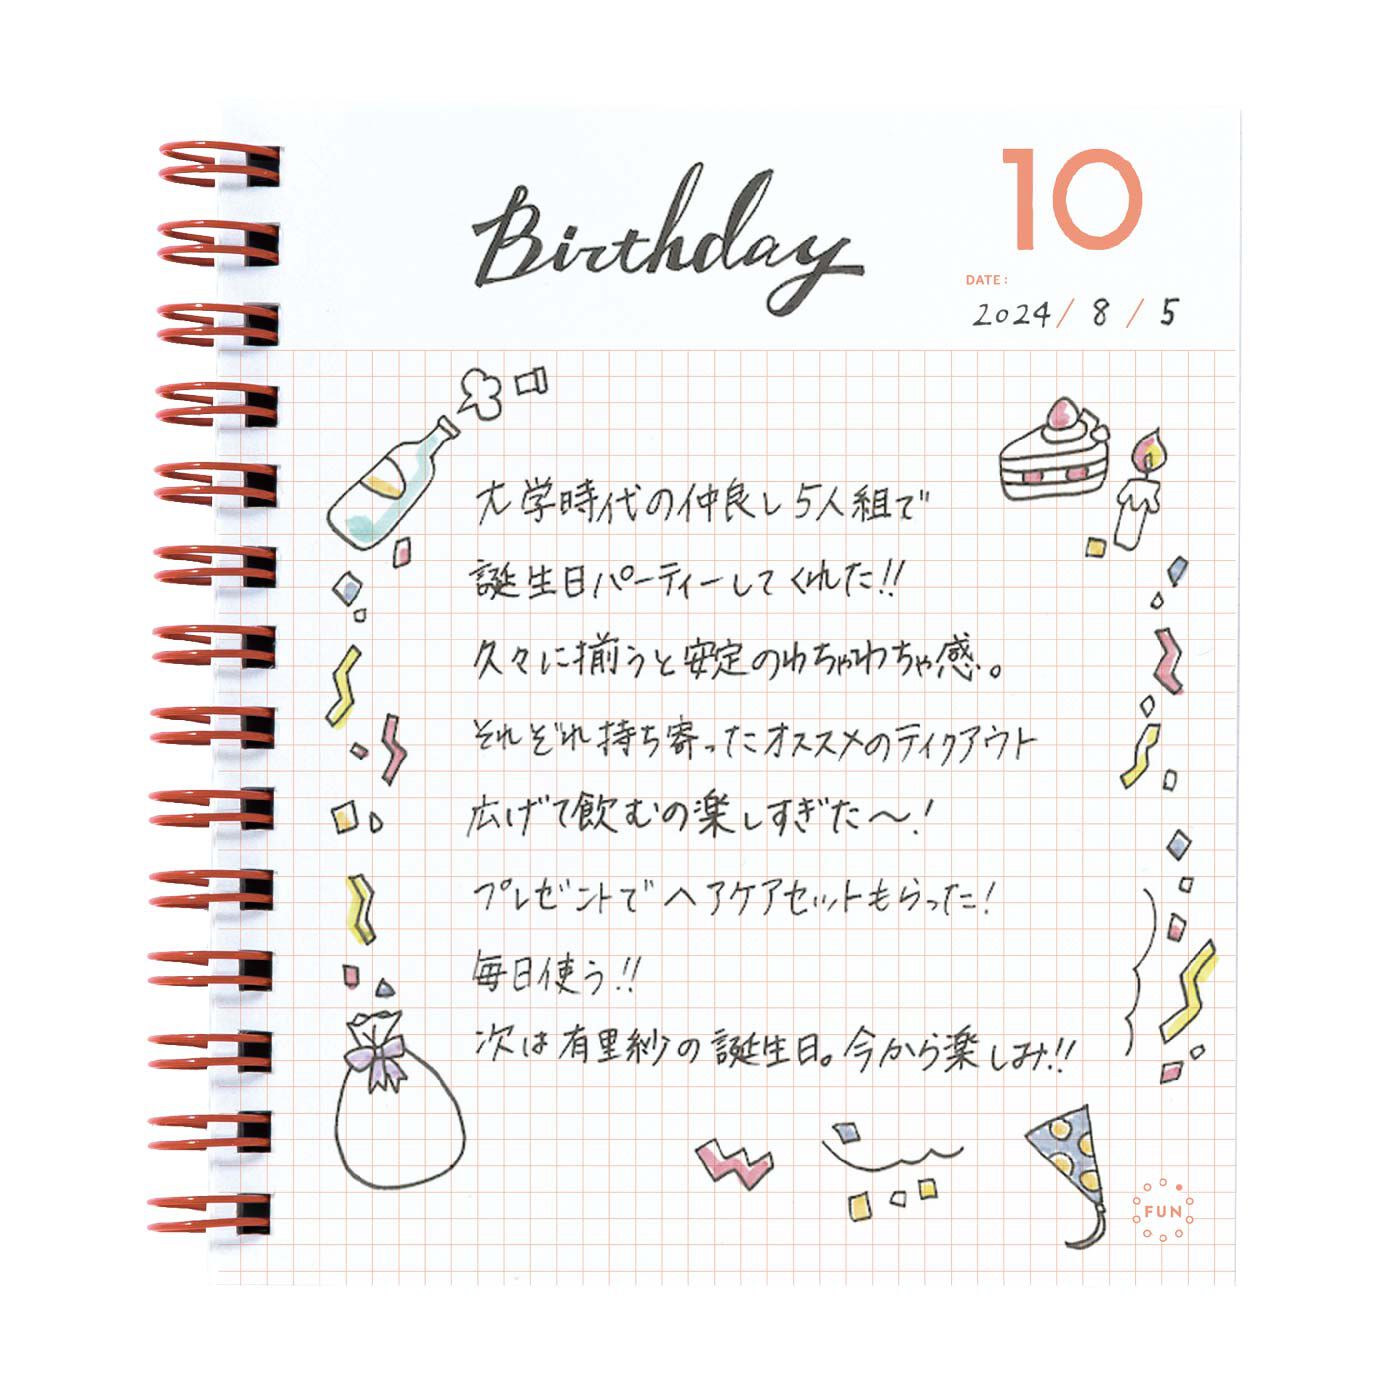 Birthday
10
DATE:
2024/8/5
大学時代の仲良し5人組で
誕生日パーティーしてくれた!!
久々に揃うと安定のわちゃわちゃ感。
それぞれ持ち寄ったオススメのテイクアウト
広げて飲むの楽しすぎた〜!
プレゼントでヘアケアセットもらった!
毎日使う!!
次は有里紗の誕生日。今から楽しみ!!
FUN